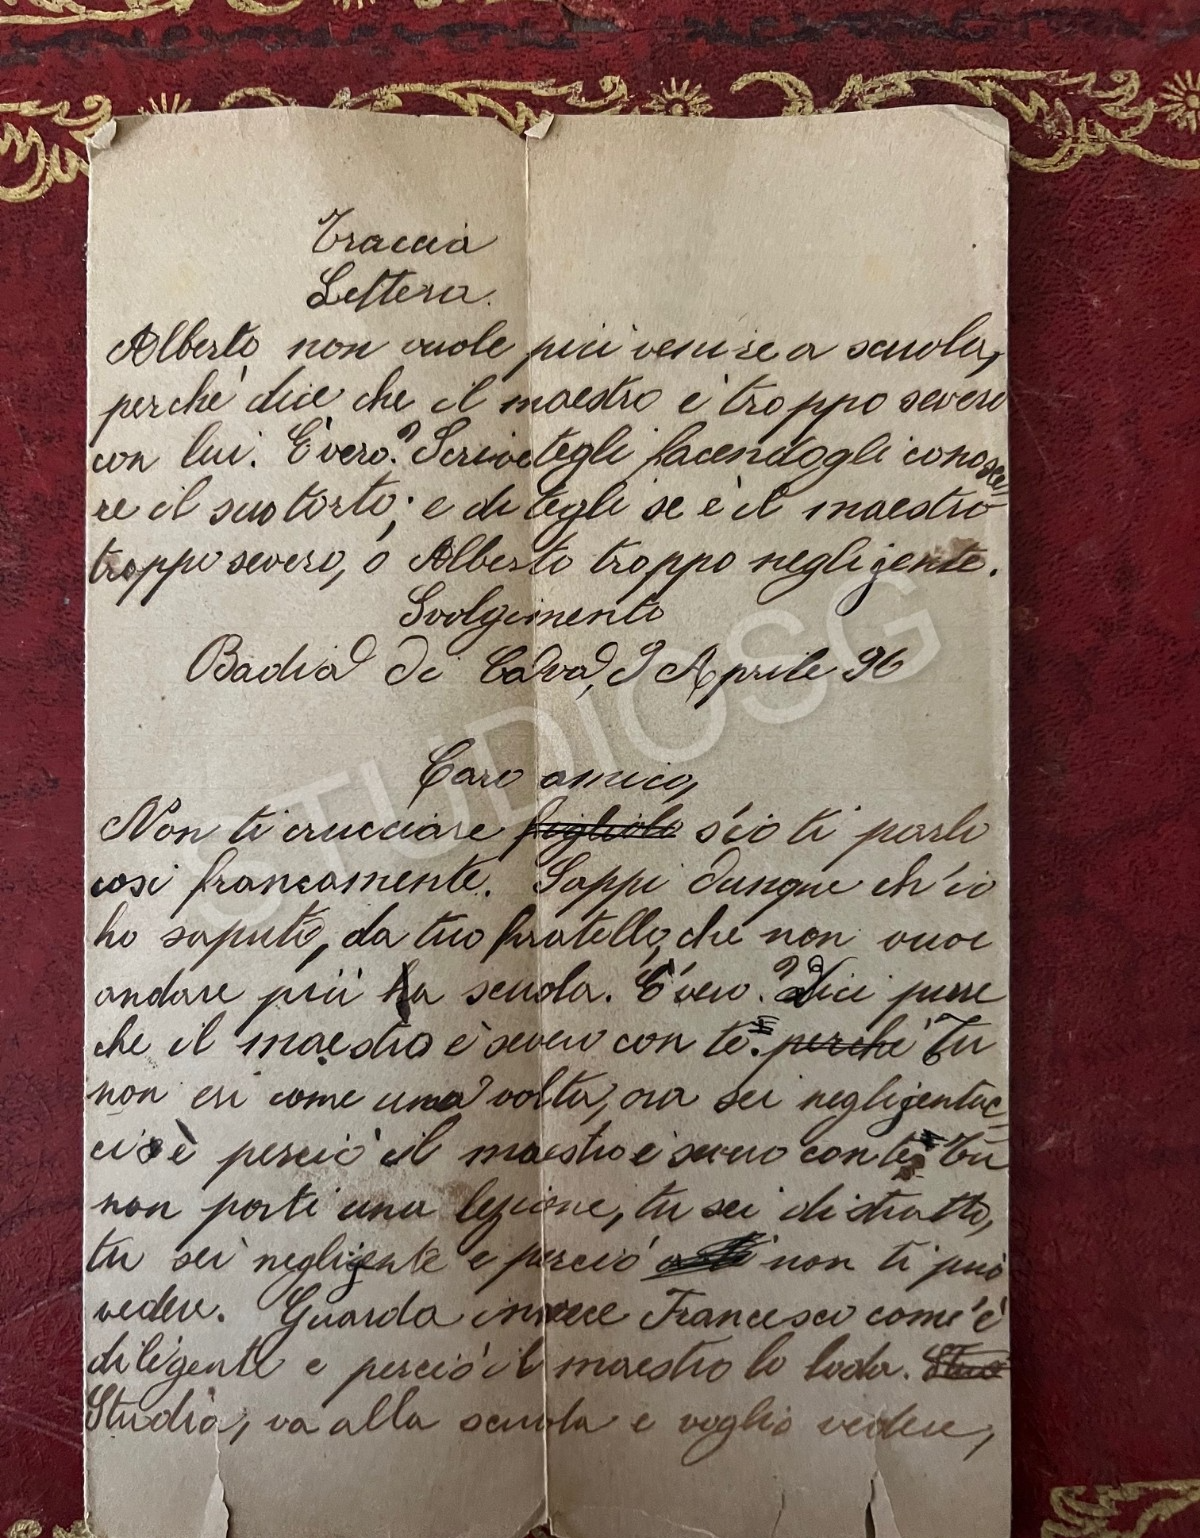 Traccia
Lettera.
Alberto non vuole più venire a scuola,
perchè dice che il maestro è troppo severo
con lui. È vero? Scrivetegli facendogli conosce-
re il suo torto; e ditegli se è il maestro
troppo severo, o Alberto troppo negligente.
Svolgimento
Badia di Cava, 9 Aprile 96
Caro amico,
Non ti crucciare figliolo s'io ti parlo
così francamente. Sappi dunque ch'io
ho saputo, da tuo fratello, che non vuoi
andare più a scuola. È vero? Dici pure
che il maestro è severo con te. perchè Tu
non eri come una volta, ora sei negligentac-
cio è perciò il maestro è severo con te. Tu
non porti una lezione, tu sei distratto,
tu sei negligente e perciò non ti può
vedere. Guarda invece Francesco com'è
diligente e perciò il maestro lo loda.
Studia, va alla scuola e voglio vedere,
STUDIOSG